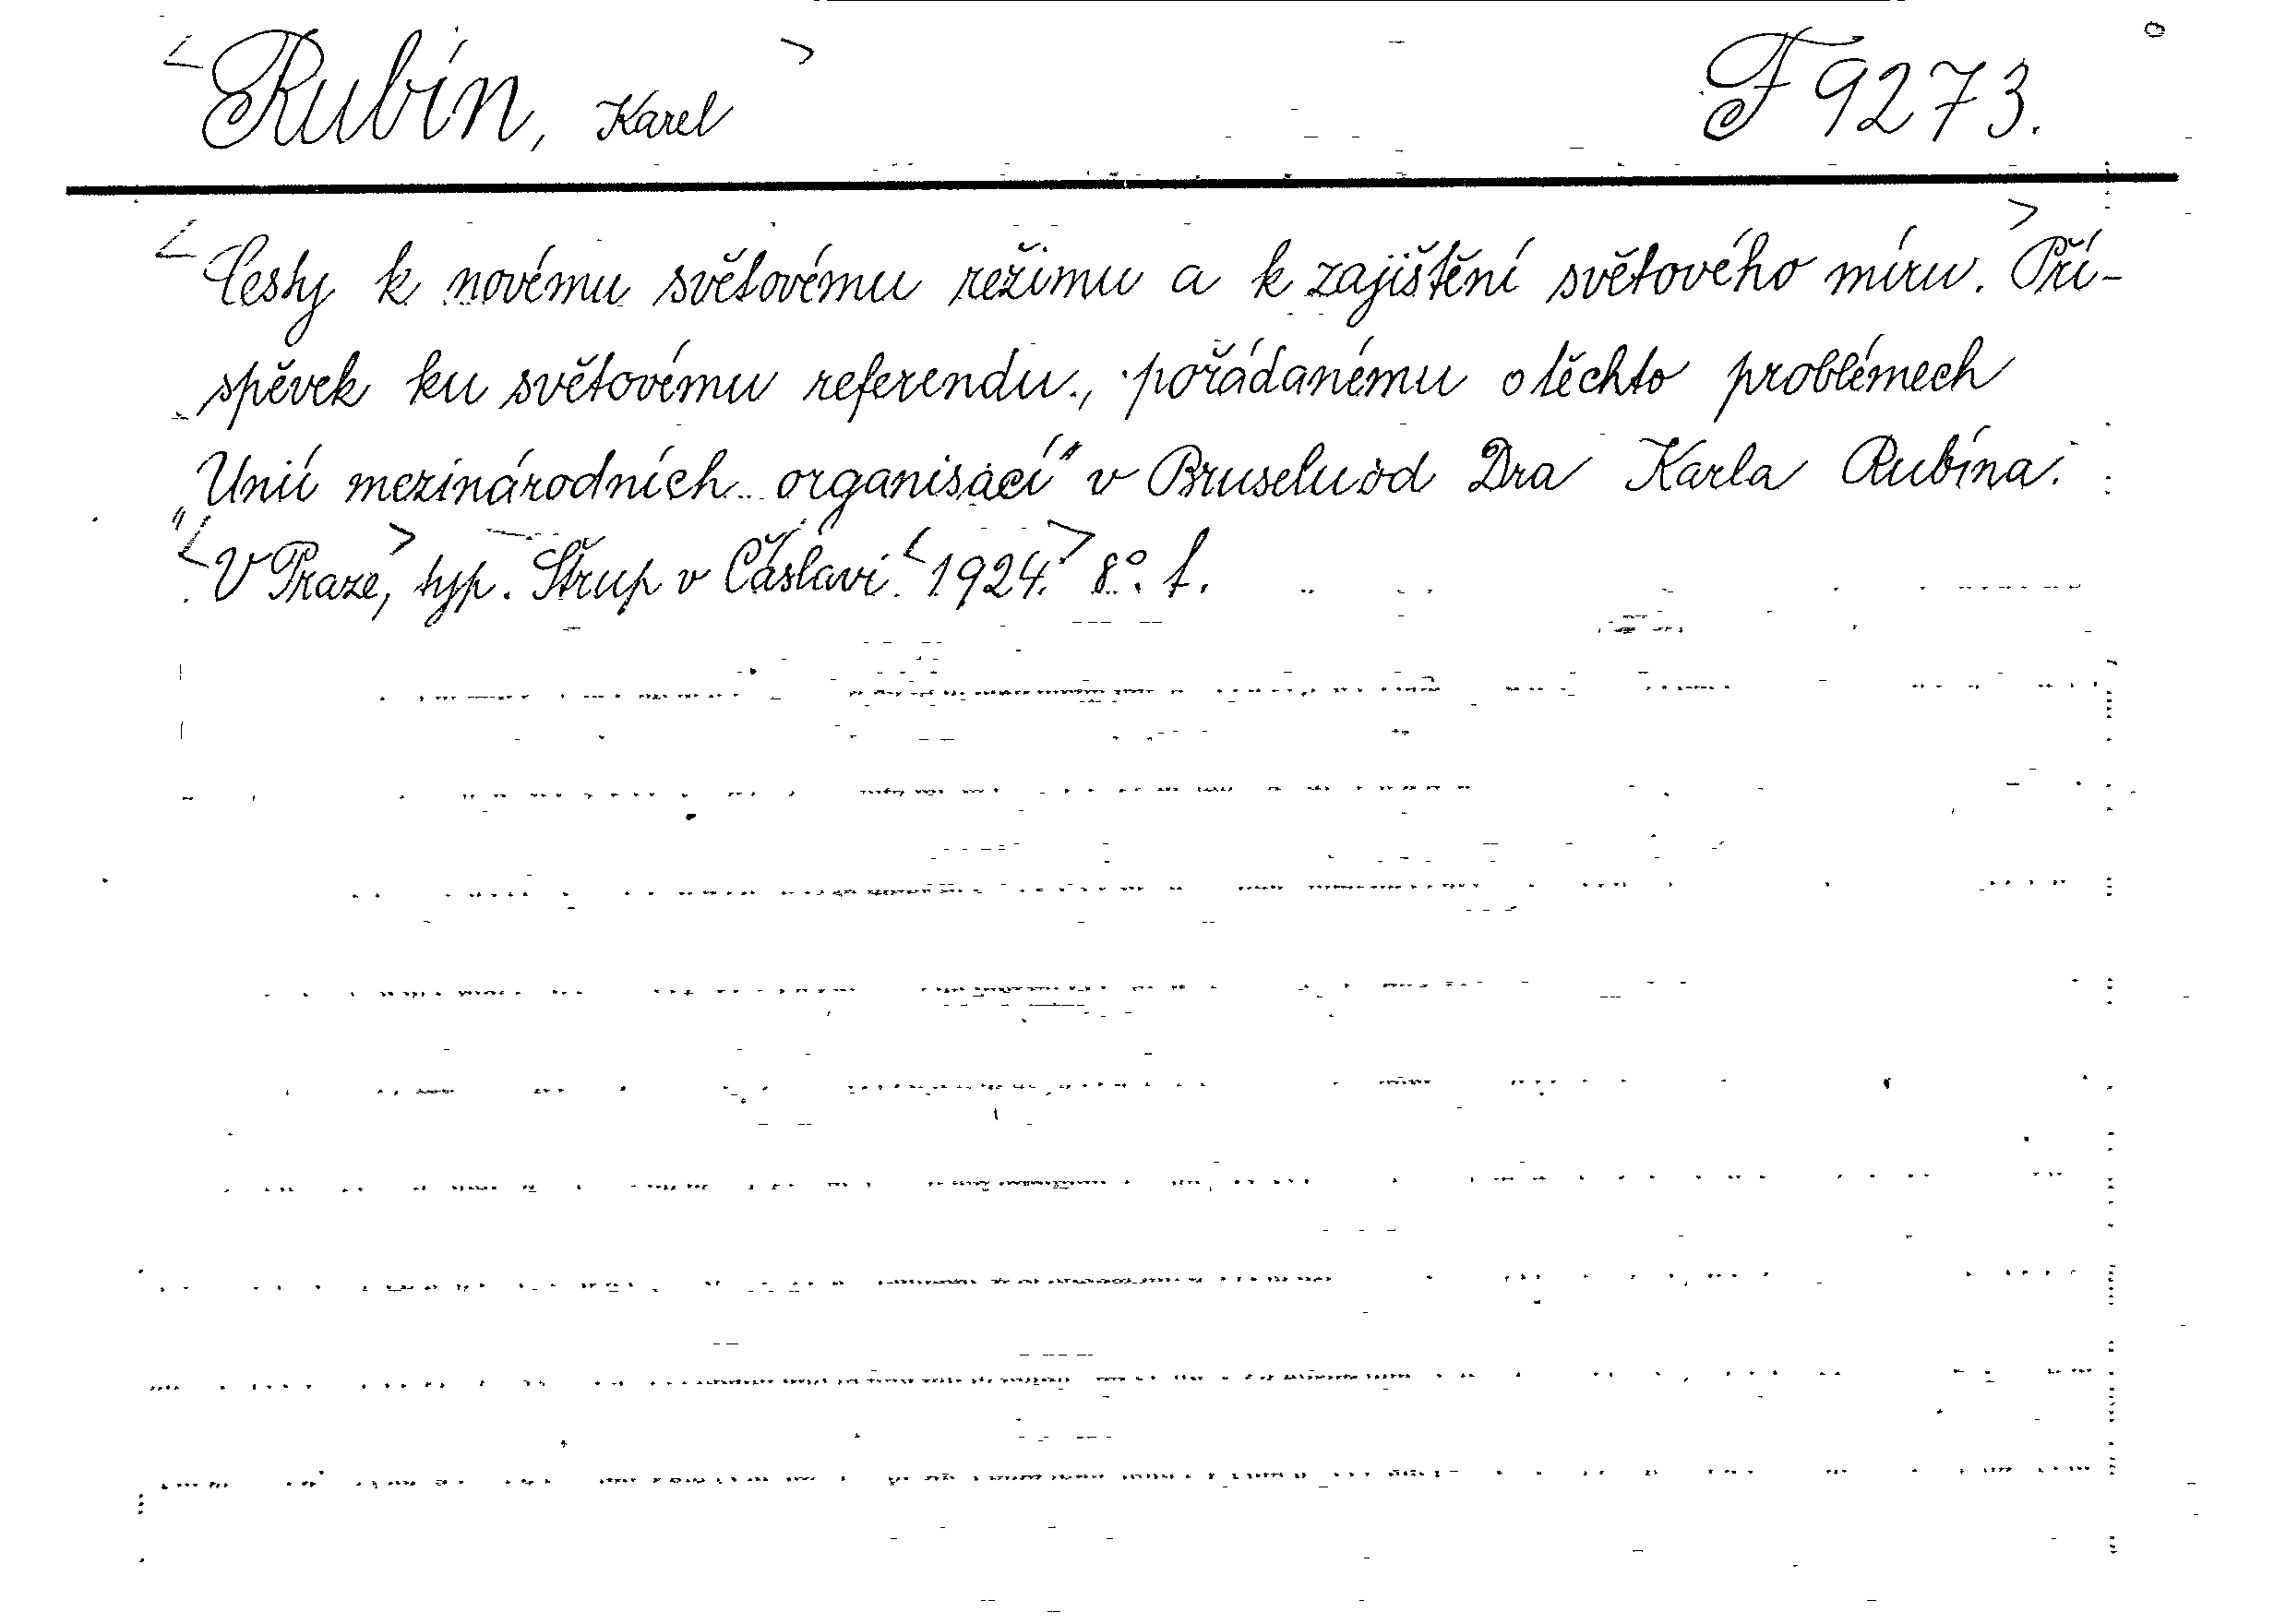 <Rubín, Karel> F 9273.
<Cesty k novému světovému režimu a k zajištění světového míru.> Pří-
spěvek ku světovému referendu, pořádanému o těchto problémech
„Unií mezinárodních organisací" v Bruselu od Dra Karla Rubína.
<V Praze,> typ. Střup v Čáslavi. <1924.> 8°. f.